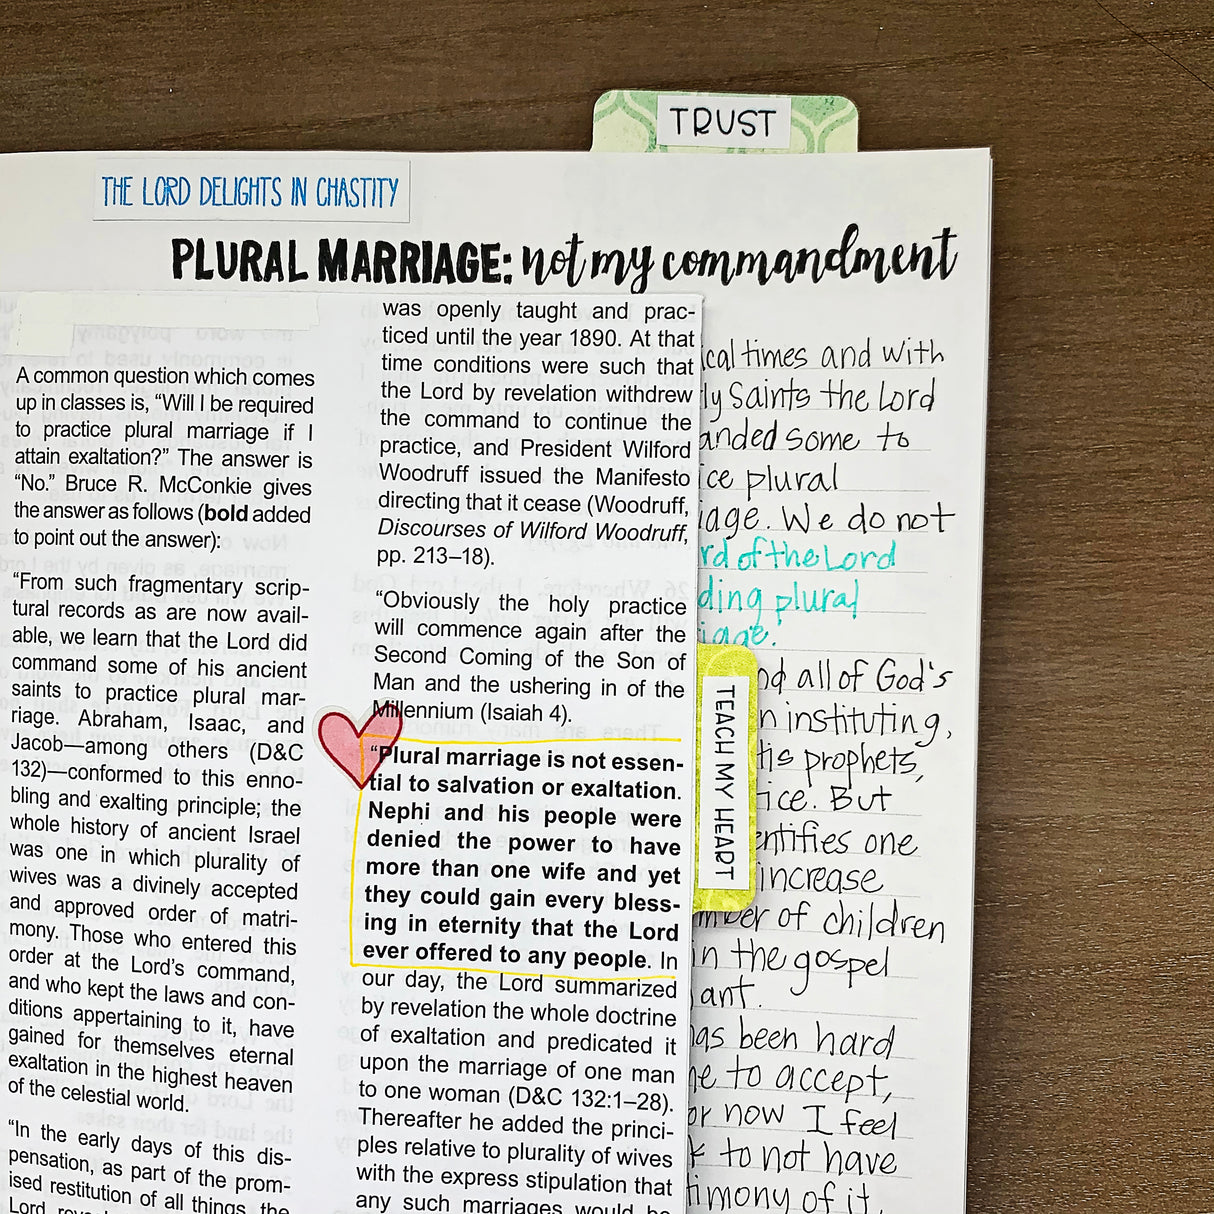 TRUST
THE LORD DELIGHTS IN CHASTITY
PLURAL MARRIAGE: not my commandment
A common question which comes
up in classes is, “Will I be required
to practice plural marriage if I
attain exaltation?” The answer is
“No.” Bruce R. McConkie gives
the answer as follows (bold added
to point out the answer):
“From such fragmentary scrip-
tural records as are now avail-
able, we learn that the Lord did
command some of his ancient
saints to practice plural mar-
riage. Abraham, Isaac, and
Jacob—among others (D&C
132)—conformed to this enno-
bling and exalting principle; the
whole history of ancient Israel
was one in which plurality of
wives was a divinely accepted
and approved order of matri-
mony. Those who entered this
order at the Lord’s command,
and who kept the laws and con-
ditions appertaining to it, have
gained for themselves eternal
exaltation in the highest heaven
of the celestial world.
“In the early days of this dis-
pensation, as part of the prom-
ised restitution of all things, the
Lord
was openly taught and prac-
ticed until the year 1890. At that
time conditions were such that
the Lord by revelation withdrew
the command to continue the
practice, and President Wilford
Woodruff issued the Manifesto
directing that it cease (Woodruff,
Discourses of Wilford Woodruff,
pp. 213–18).
“Obviously the holy practice
will commence again after the
Second Coming of the Son of
Man and the ushering in of the
Millennium (Isaiah 4).
“Plural marriage is not essen-
tial to salvation or exaltation.
Nephi and his people were
denied the power to have
more than one wife and yet
they could gain every bless-
ing in eternity that the Lord
ever offered to any people. In
our day, the Lord summarized
by revelation the whole doctrine
of exaltation and predicated it
upon the marriage of one man
to one woman (D&C 132:1–28).
Thereafter he added the princi-
ples relative to plurality of wives
with the express stipulation that
any such marriages would be
TEACH MY HEART
ical times and with
ly Saints the Lord
anded some to
ice plural
iage. We do not
rd of the Lord
ding plural
iage.
nd all of God's
n instituting,
his prophets,
ice. But
entifies one
increase
mber of children
in the gospel
ant.
has been hard
me to accept,
or now I feel
to not have
timony of it.